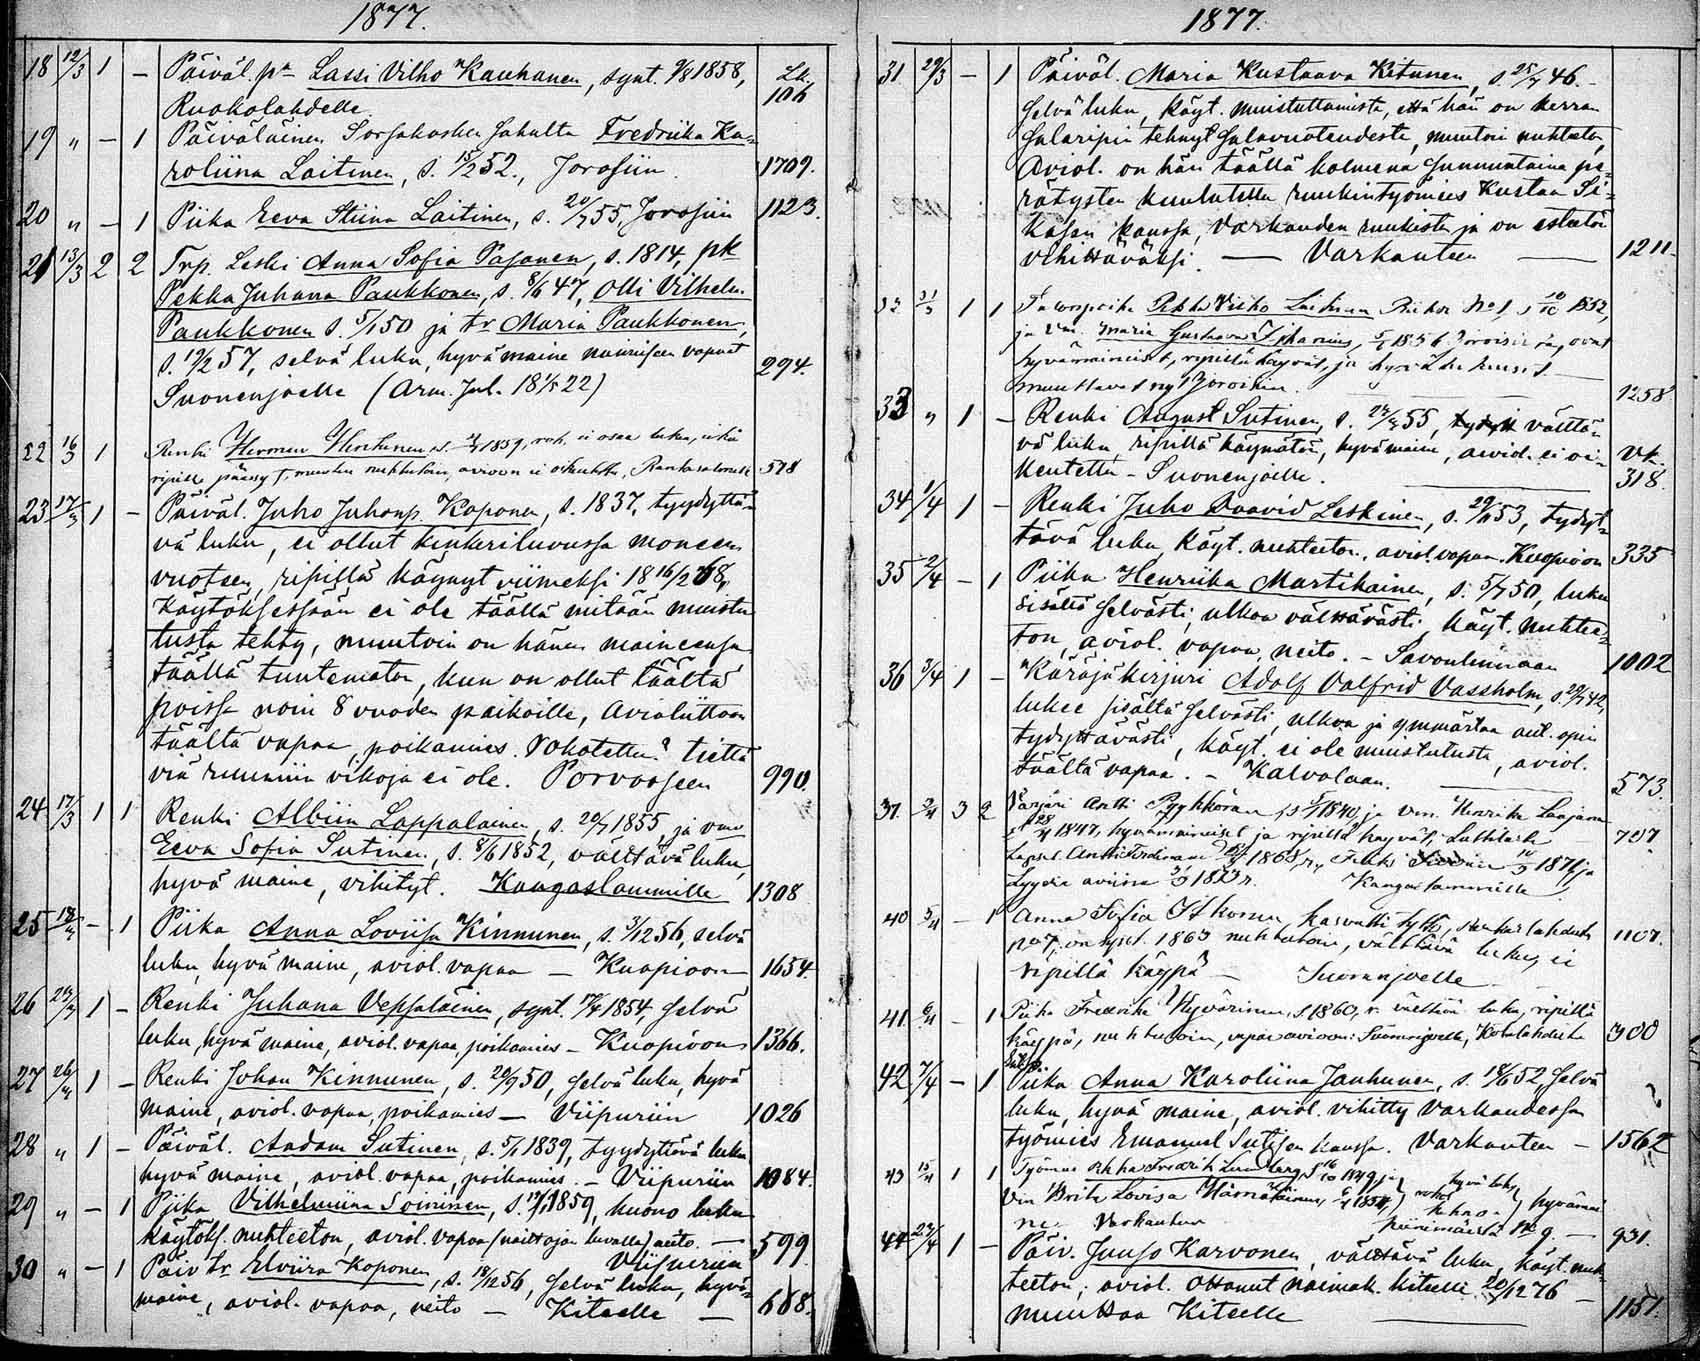 1877.
18 12/3 1 – Päiväl. pa Lassi Vilho Kauhanen, synt. 9/8 1858, Lk. 106
Ruokolahdelle.
19 „ – 1 Päiväläinen Sorsakosken sahalta Fredriika Ka-
roliina Laitinen, s. 15/2 52., Joroisiin. 1709.
20 „ – 1 Piika Eeva Stiina Laitinen, s. 20/7 55, Joroisiin 1123.
21 13/3 2 2 Trp. Leski Anna Sofia Pasanen, s. 1814, pk
Pekka Juhana Paukkonen, s. 8/6 47, Olli Vilhelm
Paukkonen s. 5/1 50 ja tr Maria Paukkonen,
s. 19/2 57, selvä luku, hyvä maine naimiseen vapaat
Suonenjoelle (Arm. Jul. 18 1/5 22) 294.
22 16/3 1 Renki Herman s. 1859, rok. ei osaa lukea, eikä
ripille päässyt, muuten nuhteeton, avioon ei oikeutettu, Rantasalmelle 578
23 17/3 1 – Päiväl. Juho Juhanp. Koponen, s. 1837, tyydyttä-
vä luku, ei ollut kinkeriluvussa moneen
vuoteen, ripillä käynyt viimeksi 18 16/2 68,
Käytöksessään ei ole täällä mitään muistu
tusta tehty, muutoin on hänen maineensa
täällä tuntematon, kun on ollut täältä
poissa noin 8 vuoden paikoille, Avioliittoon
täältä vapaa, poikamies. Rokotettu? tiettä
viä ruumiin vikoja ei ole. Porvooseen 990.
24 17/3 1 1 Renki Albiin Lappalainen, s. 20/7 1855, ja vmo
Eeva Sofia Sutinen, s. 8/6 1852, välttävä luku,
hyvä maine, vihityt. Kangaslammille 1308
25 18/3 – 1 Piika Anna Loviisa Kinnunen, s. 3/12 56, selvä
luku, hyvä maine, aviol. vapaa – Kuopioon 1654.
26 1 – Renki Juhana Vepsäläinen, synt. 1854, selvä
luku, hyvä maine, aviol. vapaa, poikamies – Kuopioon 1366.
27 26/3 1 – Renki Johan Kinnunen, s. 20/9 50, selvä luku, hyvä
maine, aviol. vapaa, poikamies – Viipuriin 1026
28 „ 1 – Päiväl. Aadam Sutinen, s. 5/1 1839, tyydyttävä luku
hyvä maine, aviol. vapaa, poikamies. – Viipuriin 1084.
29 „ – 1 Piika Vilhelmiina Soininen, s. 1859, huono luku
käytöks. nuhteeton, aviol. vapaa (naittajan luvalla) neito. – 599.
Viipuriin
30 „ – 1 Päiv tr Elviira Koponen, s. 18/12 56, selvä luku, hyvä
maine, aviol. vapaa, neito – Kiteelle – 668.
1877.
31. 29/3 – 1 Päiväl. Maria Kustaava Kitunen, s. 25/7 46. –
selvä luku, käyt. muistuttamista, että hän on kerran
salaripin tehnyt salavuoteudesta, muutoin nuhteeton,
Aviol. on hän täällä kolmena sunnuntaina pe-
rätysten kuulutettu ruukintyömies Kustaa Si-
kasen kanssa, Varkauden ruukista ja on esteetön
vihittäväksi. – Varkauteen – 1211.
32 31/3 1 1 Pekka Vilho No 1, s 10/10 1852,
ja Vm. Maria Gustaava, 1856 Joroisissa, ovat
hyvämaineiset, ripillä käyvät, ja
muuttavat nyt Joroisiin. 1258
33 „ 1 – Renki August Sutinen, s. 55, välttä-
vä luku ripillä käymätön, hyvä maine, aviol. ei oi-
keutettu – Suonenjoelle. Vk. 318.
34 1/4 1 – Renki Juho Daavid Leskinen, s. 53, tydyt-
tävä luku, käyt. nuhteeton, aviol. vapaa. Kuopioon 335
35 2/4 – 1 Piika Henriika Martikainen, s. 5/7 50, luku
sisältä selvästi, ulkoa välttävästi käyt. nuhtee-
ton, aviol. vapaa, neito. – Savonlinnaan 1002
36 3/4 1 – Käräjäkirjuri Adolf Valfrid Vassholm, s. 42,
lukee sisältä selvästi, ulkoa ja ymmärtää aut. opin
tydyttävästi, käyt. ei ole muistutusta, aviol.
täältä vapaa. – Kalvolaan. 573.
37. 3 2 Antti Pyykkönen s 1840, ja vm. Henrika
1847, hyvämaineiset ja ripillä käyvät,
Lapset. Antti Ferdinand 1868, 1871 ja
Lyydia 1873 r. Kangaslammille 707.
40 5/4 – 1 Anna Sofia Itkonen, kasvatti tyttö,
on synt. 1863 nuhteeton, välttävä luku, ei
ripillä käypä – Suonenjoelle 1107.
41. 6/4 – 1 Piika Fredrika Hyvärinen, s 1860, r. välttävä luku, ripillä
käypä, nuhteeton, vapaa avioon: Suonenjoelle, 300
42 7/4 – 1 Piika Anna Karoliina Janhunen, s. 52 selvä
luku, hyvä maine, aviol. vihitty Varkaudessa
työmies Emanuel kanssa. Varkauteen – 1562
43 15/4 1 1 Työmies Fredrik Lundberg, s 1849, ja
Vm Brita Lovisa 1854, hyvä luku, hyvämai
ne. Varkauteen 931.
44 23/4 1 – Päiv. Juuso Karvonen, välttävä luku, käyt. nuh-
teeton, aviol. ottanut naimak. kiteelle 20/12 76 –
muuttaa Kiteelle 1157.